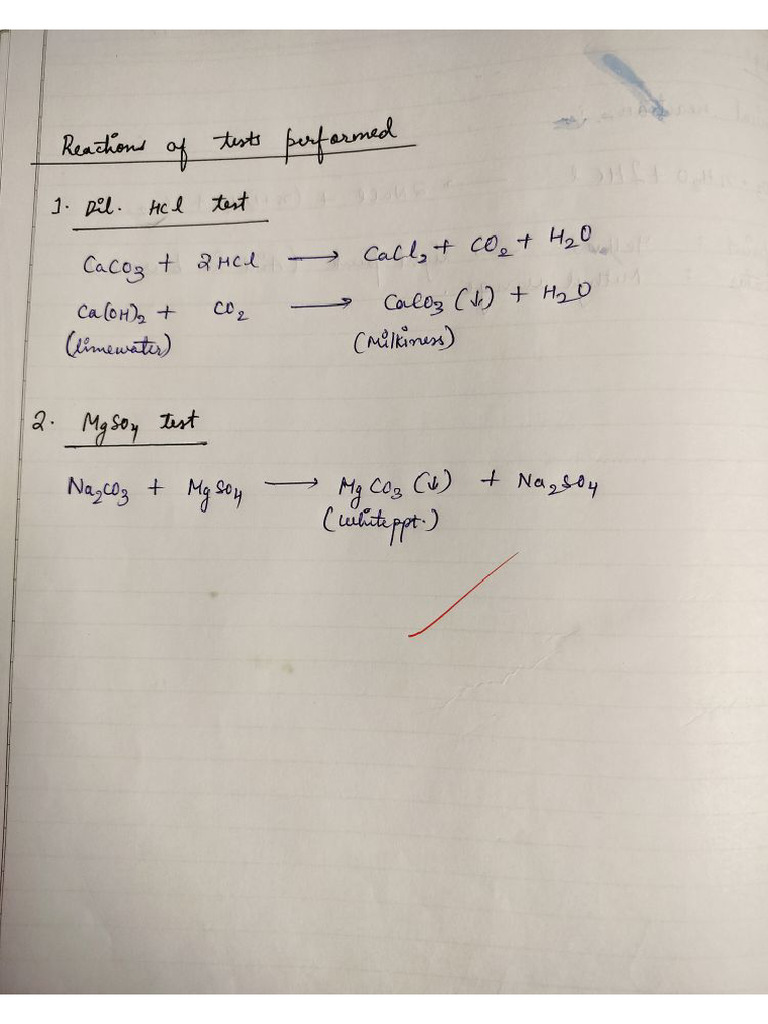 Reactions of tests performed
1. Dil. HCl test
CaCO3 + 2HCl ⟶ CaCl2 + CO2 + H2O
Ca(OH)2 + CO2 ⟶ CaCO3 (↓) + H2O
(limewater) (Milkiness)
2. MgSO4 test
Na2CO3 + MgSO4 ⟶ MgCO3 (↓) + Na2SO4
(White ppt.)